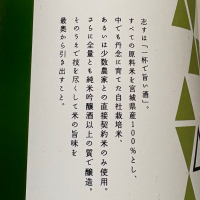 志すは「一杯で旨い酒」。
すべての原料米を宮城県産100％とし、
中でも丹念に育てた自社栽培米、
あるいは少数農家との直接契約米のみ使用。
さらに全量とも純米吟醸酒以上の質で醸造。
そのうえで技を尽くして米の旨味を
最奥から引き出すこと。